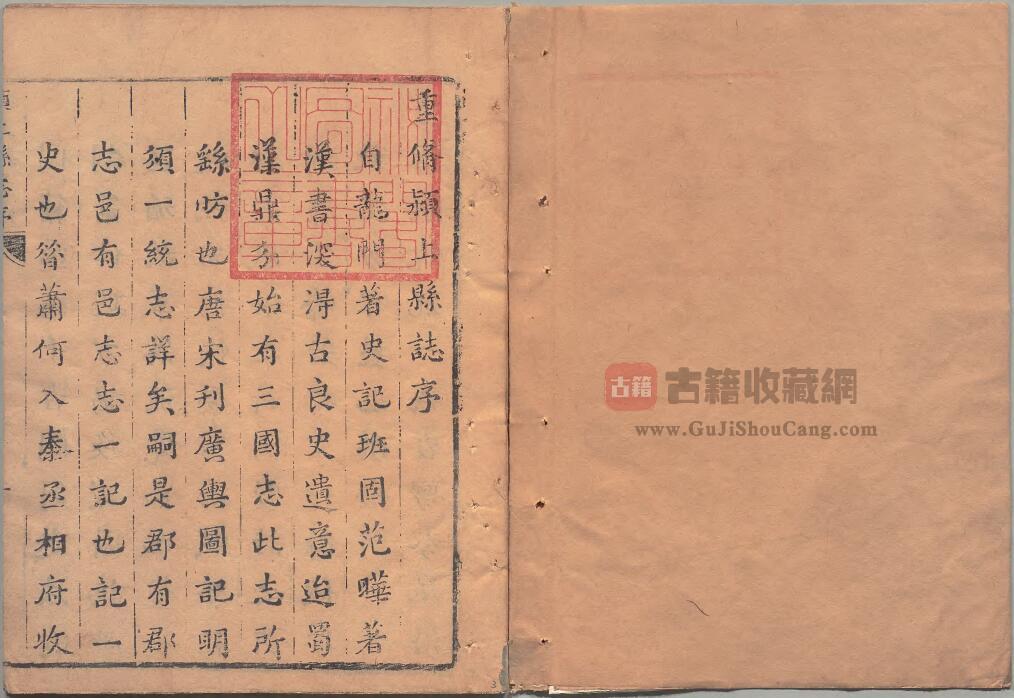 重脩潁上縣誌序
自龍門著史記班固范曄著
漢書深得古良史遺意迨蜀
漢鼎分始有三國志此志所
繇昉也唐宋刋廣輿圖記明
須一統志詳矣嗣是郡有郡
志邑有邑志志一記也記一
史也昝蕭何入秦丞相府收
古籍
古籍收藏網
www.GuJiShouCang.com